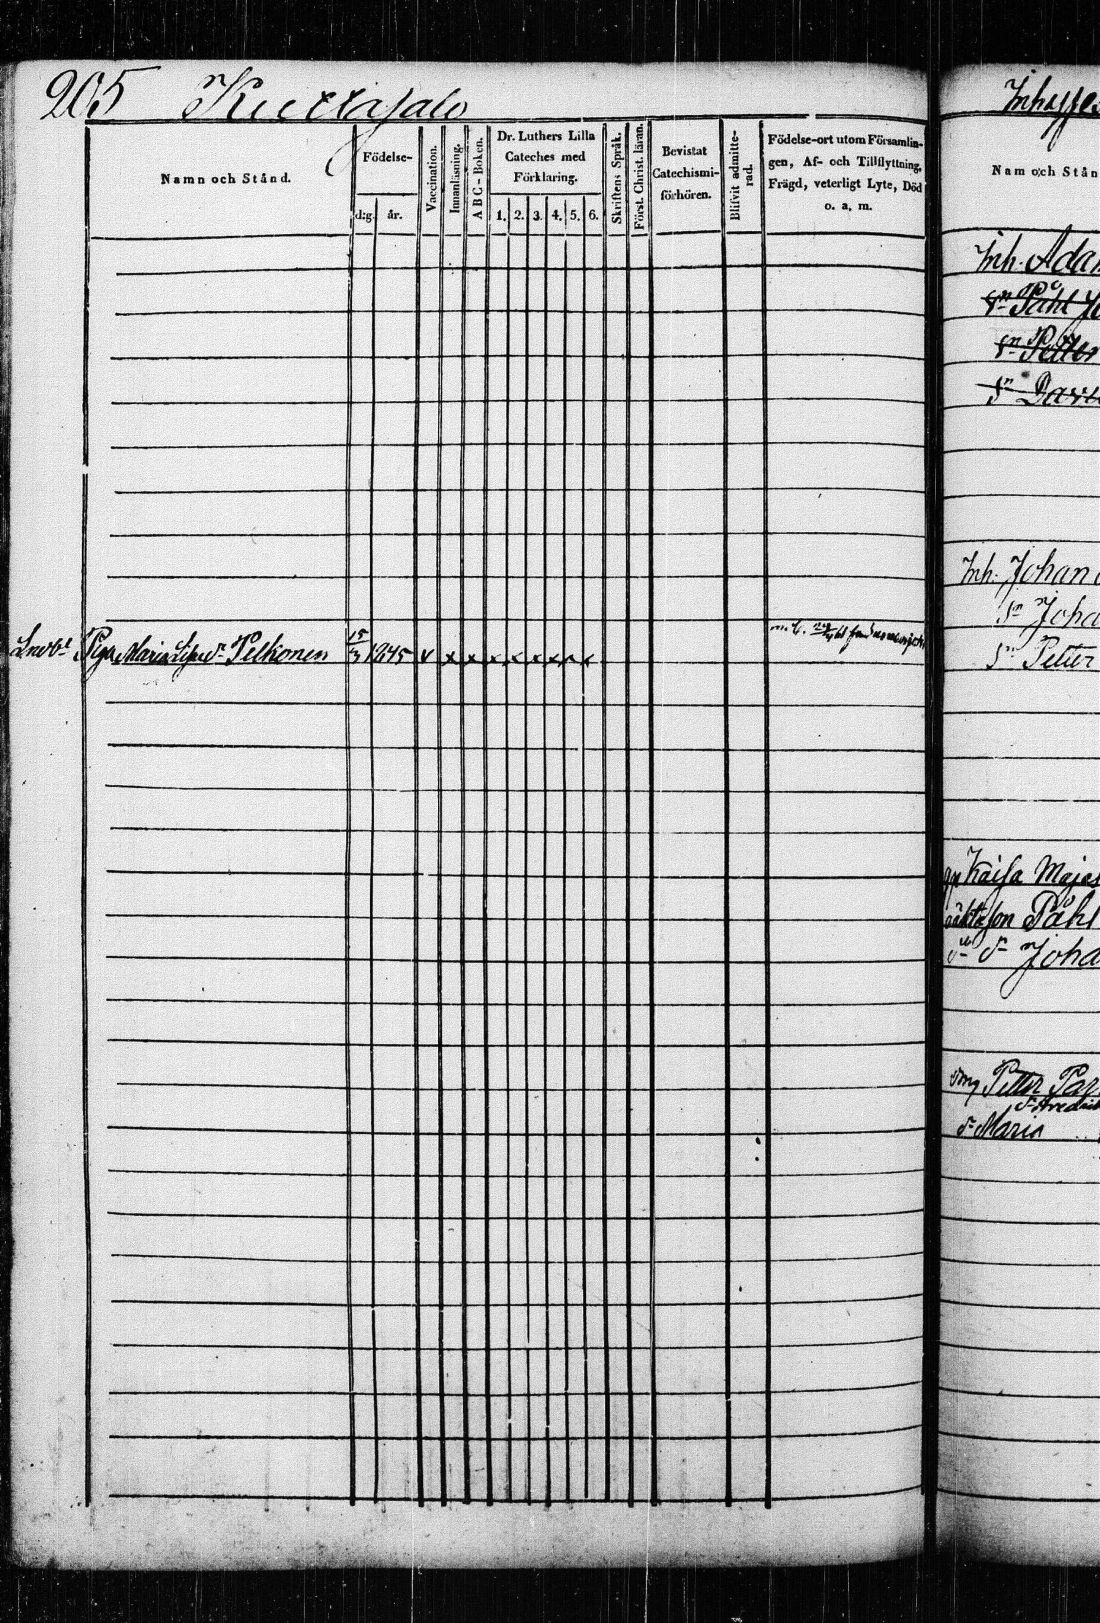 205 Kuttajalo
Namn och Stånd.
Födelse-
d:g. år.
Vaccination.
Innanläsning.
A B C - Boken.
Dr. Luthers Lilla
Cateches med
Förklaring.
1. 2. 3. 4. 5. 6.
Skriftens Språk.
Först. Christ. läran.
Bevistat
Catechismi-
förhören.
Blifvit admitte-
rad.
Födelse-ort utom Församlin-
gen, Af- och Tillflyttning,
Frägd, veterligt Lyte, Död
o. a. m.
Piga Maria Pelkonen 15/3 1845 v x x x x x x x x
Namn och Stån
Inh. Adam
sn Påhl
sn Petter
sn
Inh. Johan
sn Joha
sn Petter
Kaisa Maja
son Påhl
Joha
Petter
dr Maria